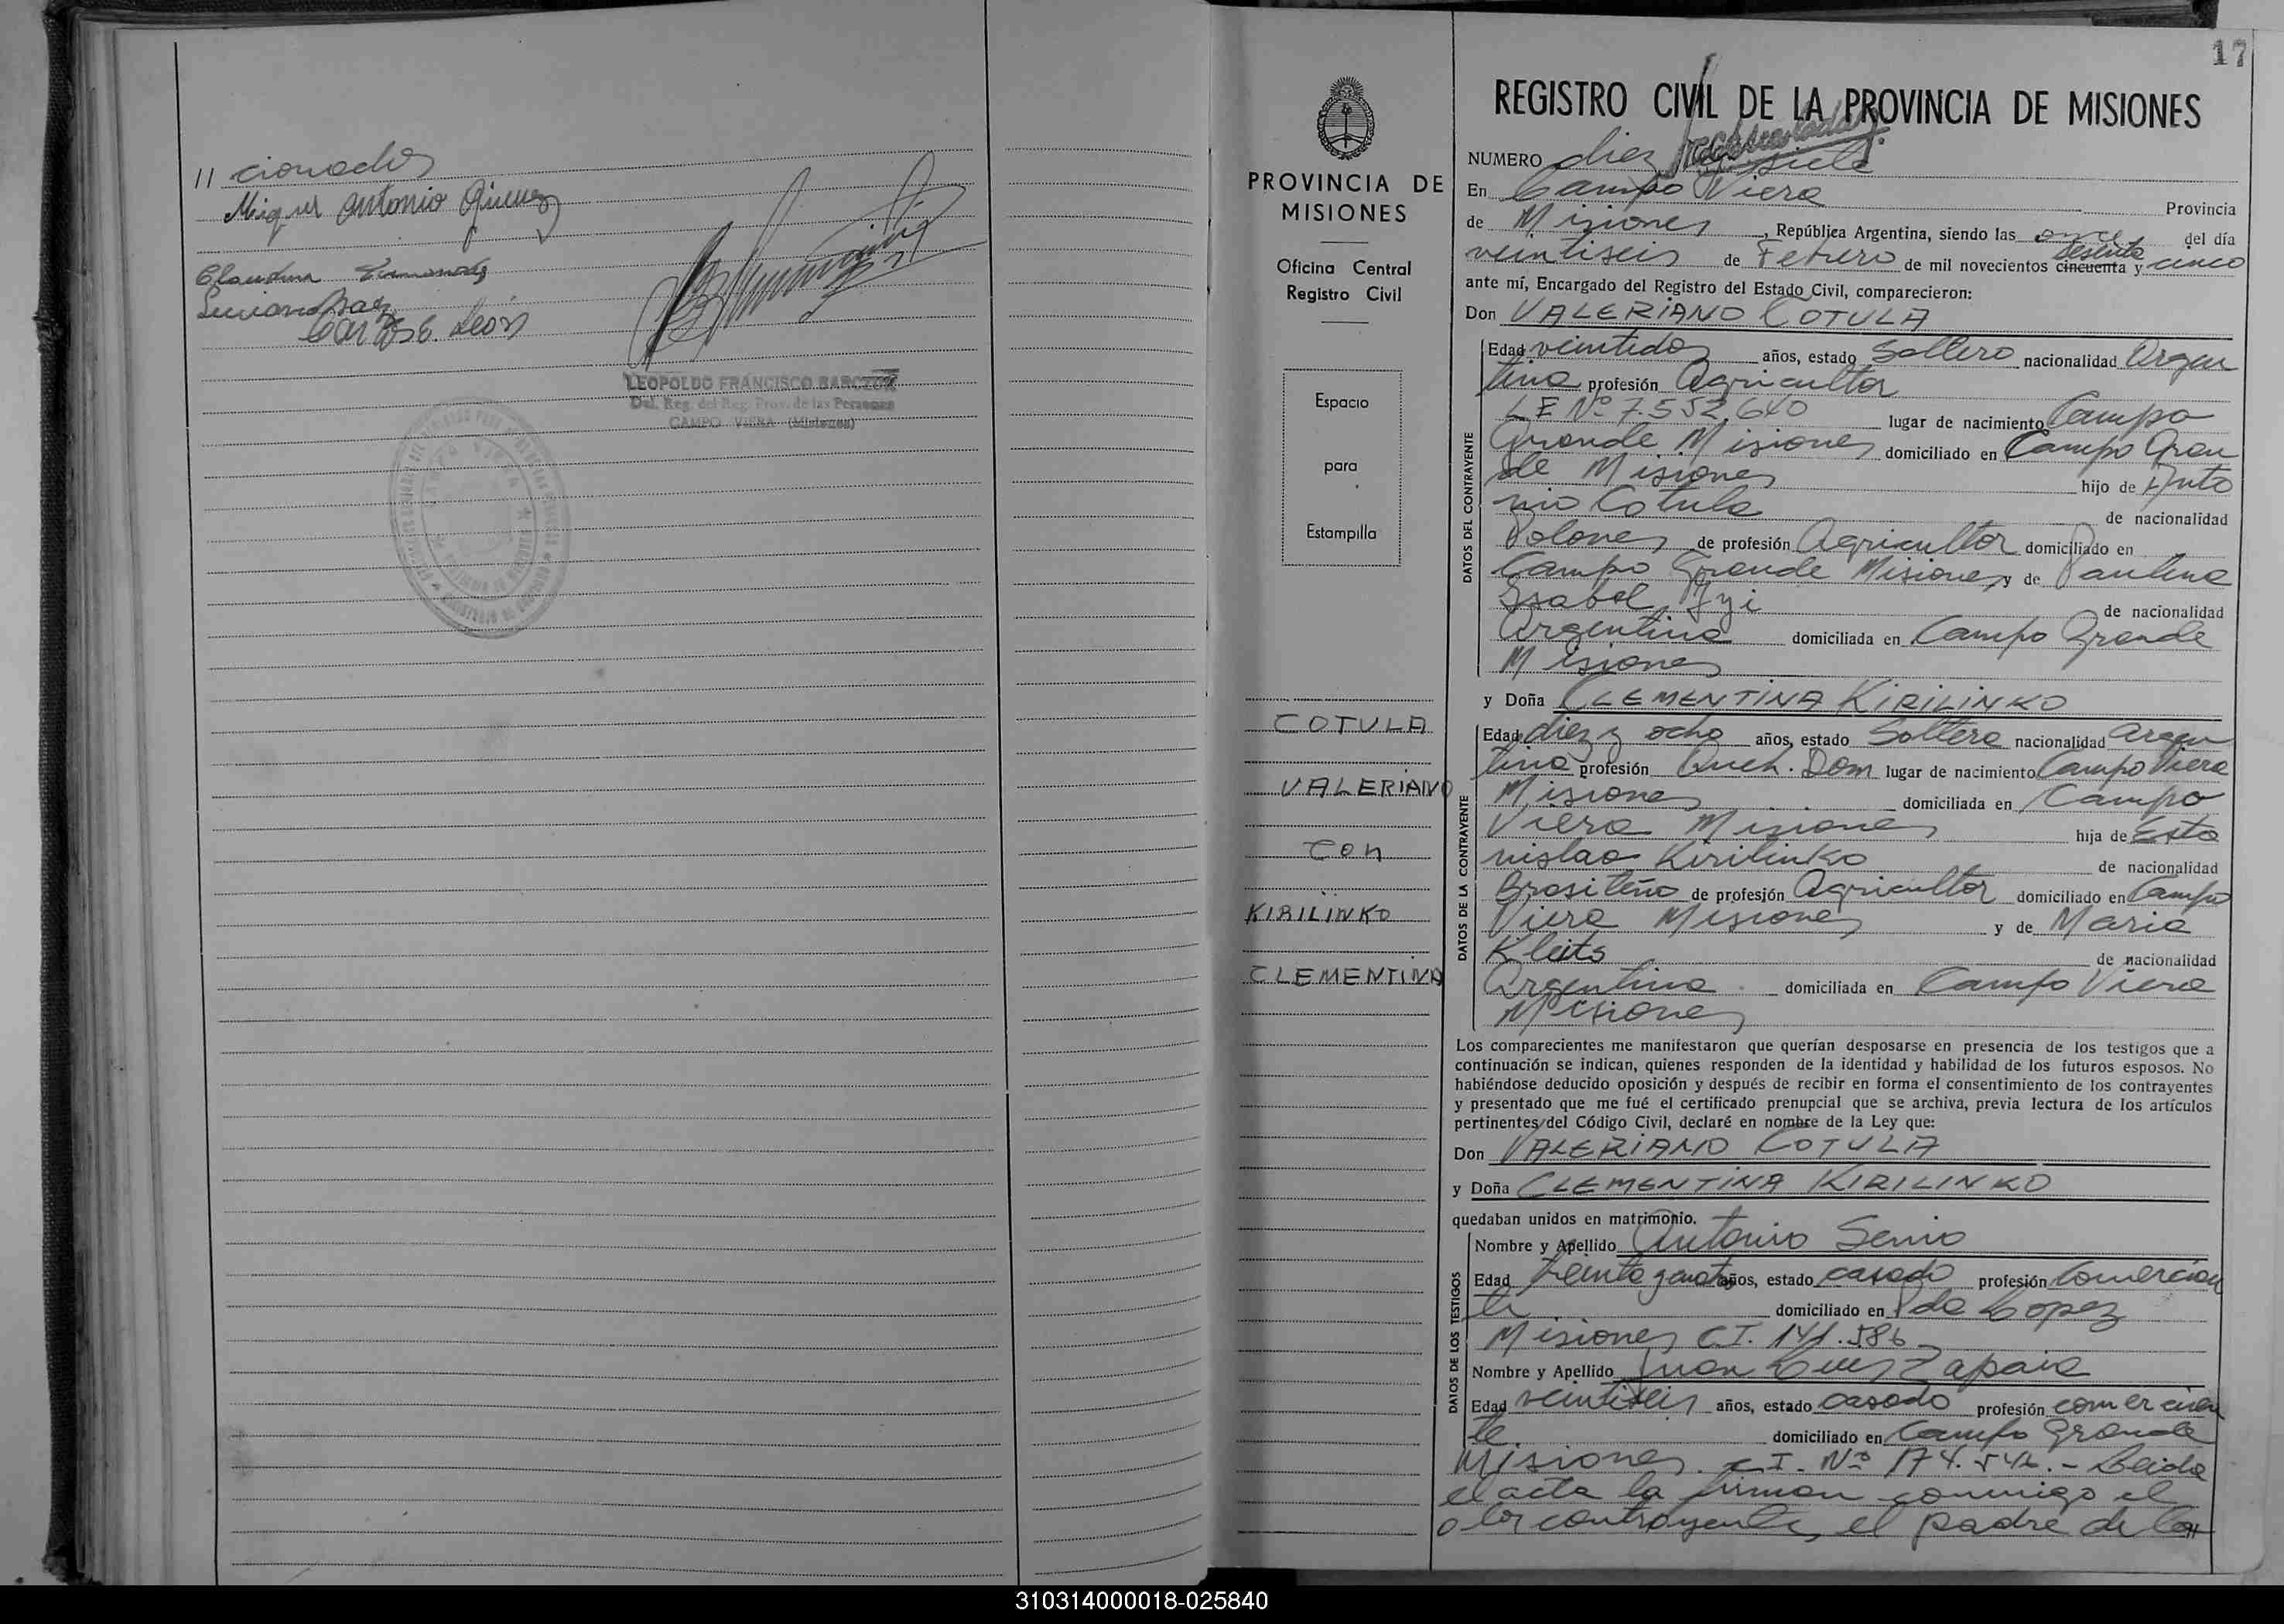 // cionados
Miguel Antonio Gimenez
Claudina Fernandez
Luciano Baez
Carlos E. León
LEOPOLDO FRANCISCO BARCZUK
Del. Reg. del Reg. Prov. de las Personas
CAMPO VIERA (Misiones)
PROVINCIA DE
MISIONES
Oficina Central
Registro Civil
Espacio
para
Estampilla
COTULA
VALERIANO
CON
KIRILINKO
CLEMENTINA
17
REGISTRO CIVIL DE LA PROVINCIA DE MISIONES
NUMERO diez y siete
En Campo Viera Provincia
de Misiones, República Argentina, siendo las once del día
veintiseis de Febrero de mil novecientos cincuenta sesenta y cinco
ante mí, Encargado del Registro del Estado Civil, comparecieron:
Don VALERIANO COTULA
DATOS DEL CONTRAYENTE
Edad veintidos años, estado Soltero nacionalidad Argen
tina profesión Agricultor
LE Nº 7.552.640 lugar de nacimiento Campo
Grande Misiones domiciliado en Campo Gran
de Misiones hijo de Anto
nio Cotula de nacionalidad
Polones de profesión Agricultor domiciliado en
Campo Grande Misiones y de Paulina
Isabel de nacionalidad
Argentina domiciliada en Campo Grande
Misiones
y Doña CLEMENTINA KIRILINKO
DATOS DE LA CONTRAYENTE
Edad diez y ocho años, estado Soltera nacionalidad Argen
tina profesión Queh. Dom lugar de nacimiento Campo Viera
Misiones domiciliada en Campo
Viera Misiones hija de Esta
nislao Kirilinko de nacionalidad
Brasileño de profesión Agricultor domiciliado en Campo
Viera Misiones y de Maria
Kleits de nacionalidad
Argentina domiciliada en Campo Viera
Misiones
Los comparecientes me manifestaron que querían desposarse en presencia de los testigos que a
continuación se indican, quienes responden de la identidad y habilidad de los futuros esposos. No
habiéndose deducido oposición y después de recibir en forma el consentimiento de los contrayentes
y presentado que me fué el certificado prenupcial que se archiva, previa lectura de los artículos
pertinentes del Código Civil, declaré en nombre de la Ley que:
Don VALERIANO COTULA
y Doña CLEMENTINA KIRILINKO
quedaban unidos en matrimonio.
DATOS DE LOS TESTIGOS
Nombre y Apellido Antonio Senio
Edad treinta y cuatro años, estado casado profesión Comercian
te domiciliado en Pda Lopez
Misiones C.I. 141.586
Nombre y Apellido Juan Luis Zapaia
Edad veintiseis años, estado casado profesión comercian
te domiciliado en Campo Grande
Misiones C.I. Nº 174.542.- Leida
el acta la firman conmigo el
o los contrayentes, el padre de la//
310314000018-025840